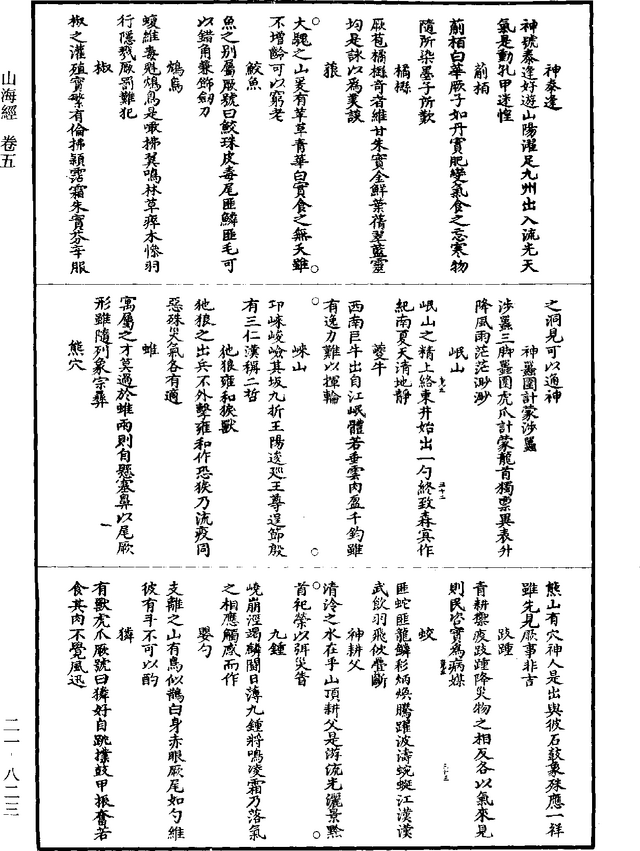 山海經 卷五
神泰逢
神號泰逢好遊山陽濯足九州出入流光天
氣是動孔甲迷惶
葪栢
葪栢白華厥子如丹實肥變氣食之忘寒物
隨所染墨子所歎
橘櫾
厥苞橘櫾奇者維甘朱實金鮮葉蒨翠藍靈
均是詠以為美談
䔄
大騩之山爰有苹草青華白實食之無夭雖
不增齡可以窮老
鮫魚
魚之別屬厥號曰鮫珠皮毒尾匪鱗匪毛可
以錯角兼飾劒刀
鴆鳥
蝮維毒魁鴆鳥是噉拂翼鳴林草瘁木慘羽
行隱戮厥罰難犯
椒
椒之灌殖實繁有倫拂穎霑霜朱實芬辛服
之洞見可以通神
神䰠圍計蒙涉䰠
涉䰠三脚䰠圍虎爪計蒙龍首獨稟異表升
降風雨茫茫渺渺
岷山
岷山之精上絡東井始出一勺終致淼㝠作
紀南夏天清地靜
夔牛
西南巨牛出自江岷體若垂雲肉盈千鈞雖
有逸力難以揮輪
崍山
卭崍峻嶮其坂九折王陽逡廵王尊逞節殷
有三仁漢稱二哲
㹢狼雍和㹤獸
㹢狼之出兵不外擊雍和作恐㹤乃流疫同
惡殊災氣各有適
蜼
寓屬之才莫過於蜼雨則自懸塞鼻以尾厥
形雖隨列象宗彝
熊穴
熊山有穴神人是出與彼石鼓象殊應一祥
雖先見厥事非吉
跂踵
青耕禦疫跂踵降災物之相反各以氣來見
則民咨實為病媒
蛟
匪蛇匪龍鱗彩炳煥騰躍波濤蜿蜒江漢漢
武飲羽飛佽疊斷
神耕父
清泠之水在乎山頂耕父是游流光灑景黔
首祀禜以弭災眚
九鍾
嶢崩涇竭麟鬬日薄九鍾將鳴凌霜乃落氣
之相應觸感而作
嬰勺
支離之山有鳥似鵲白身赤眼厥尾如勺維
彼有斗不可以酌
獜
有獸虎爪厥號曰獜好自跳撲鼓甲振奮若
食其肉不覺風迅
二一·八二三